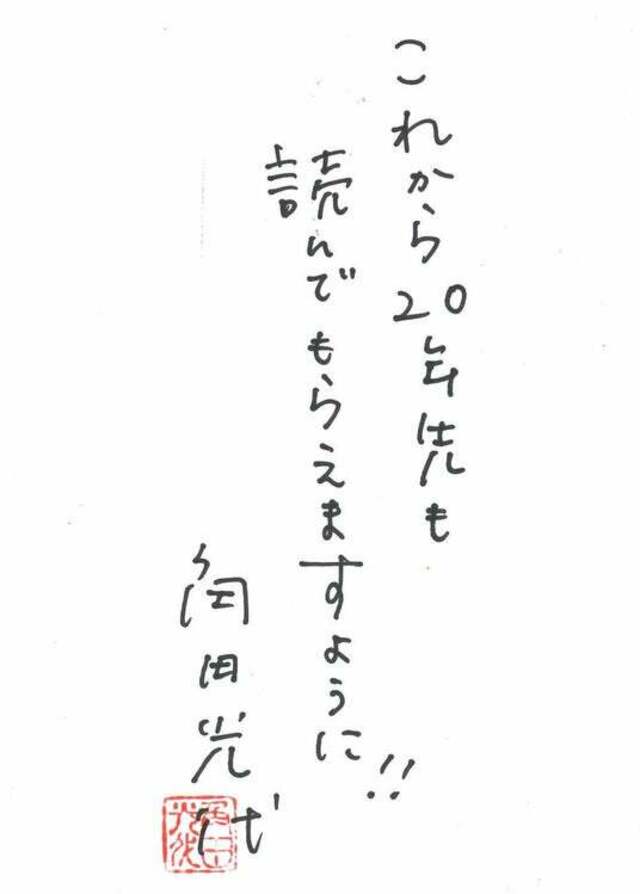 これから20年先も
読んでもらえますように!!
角田光代
角田光代